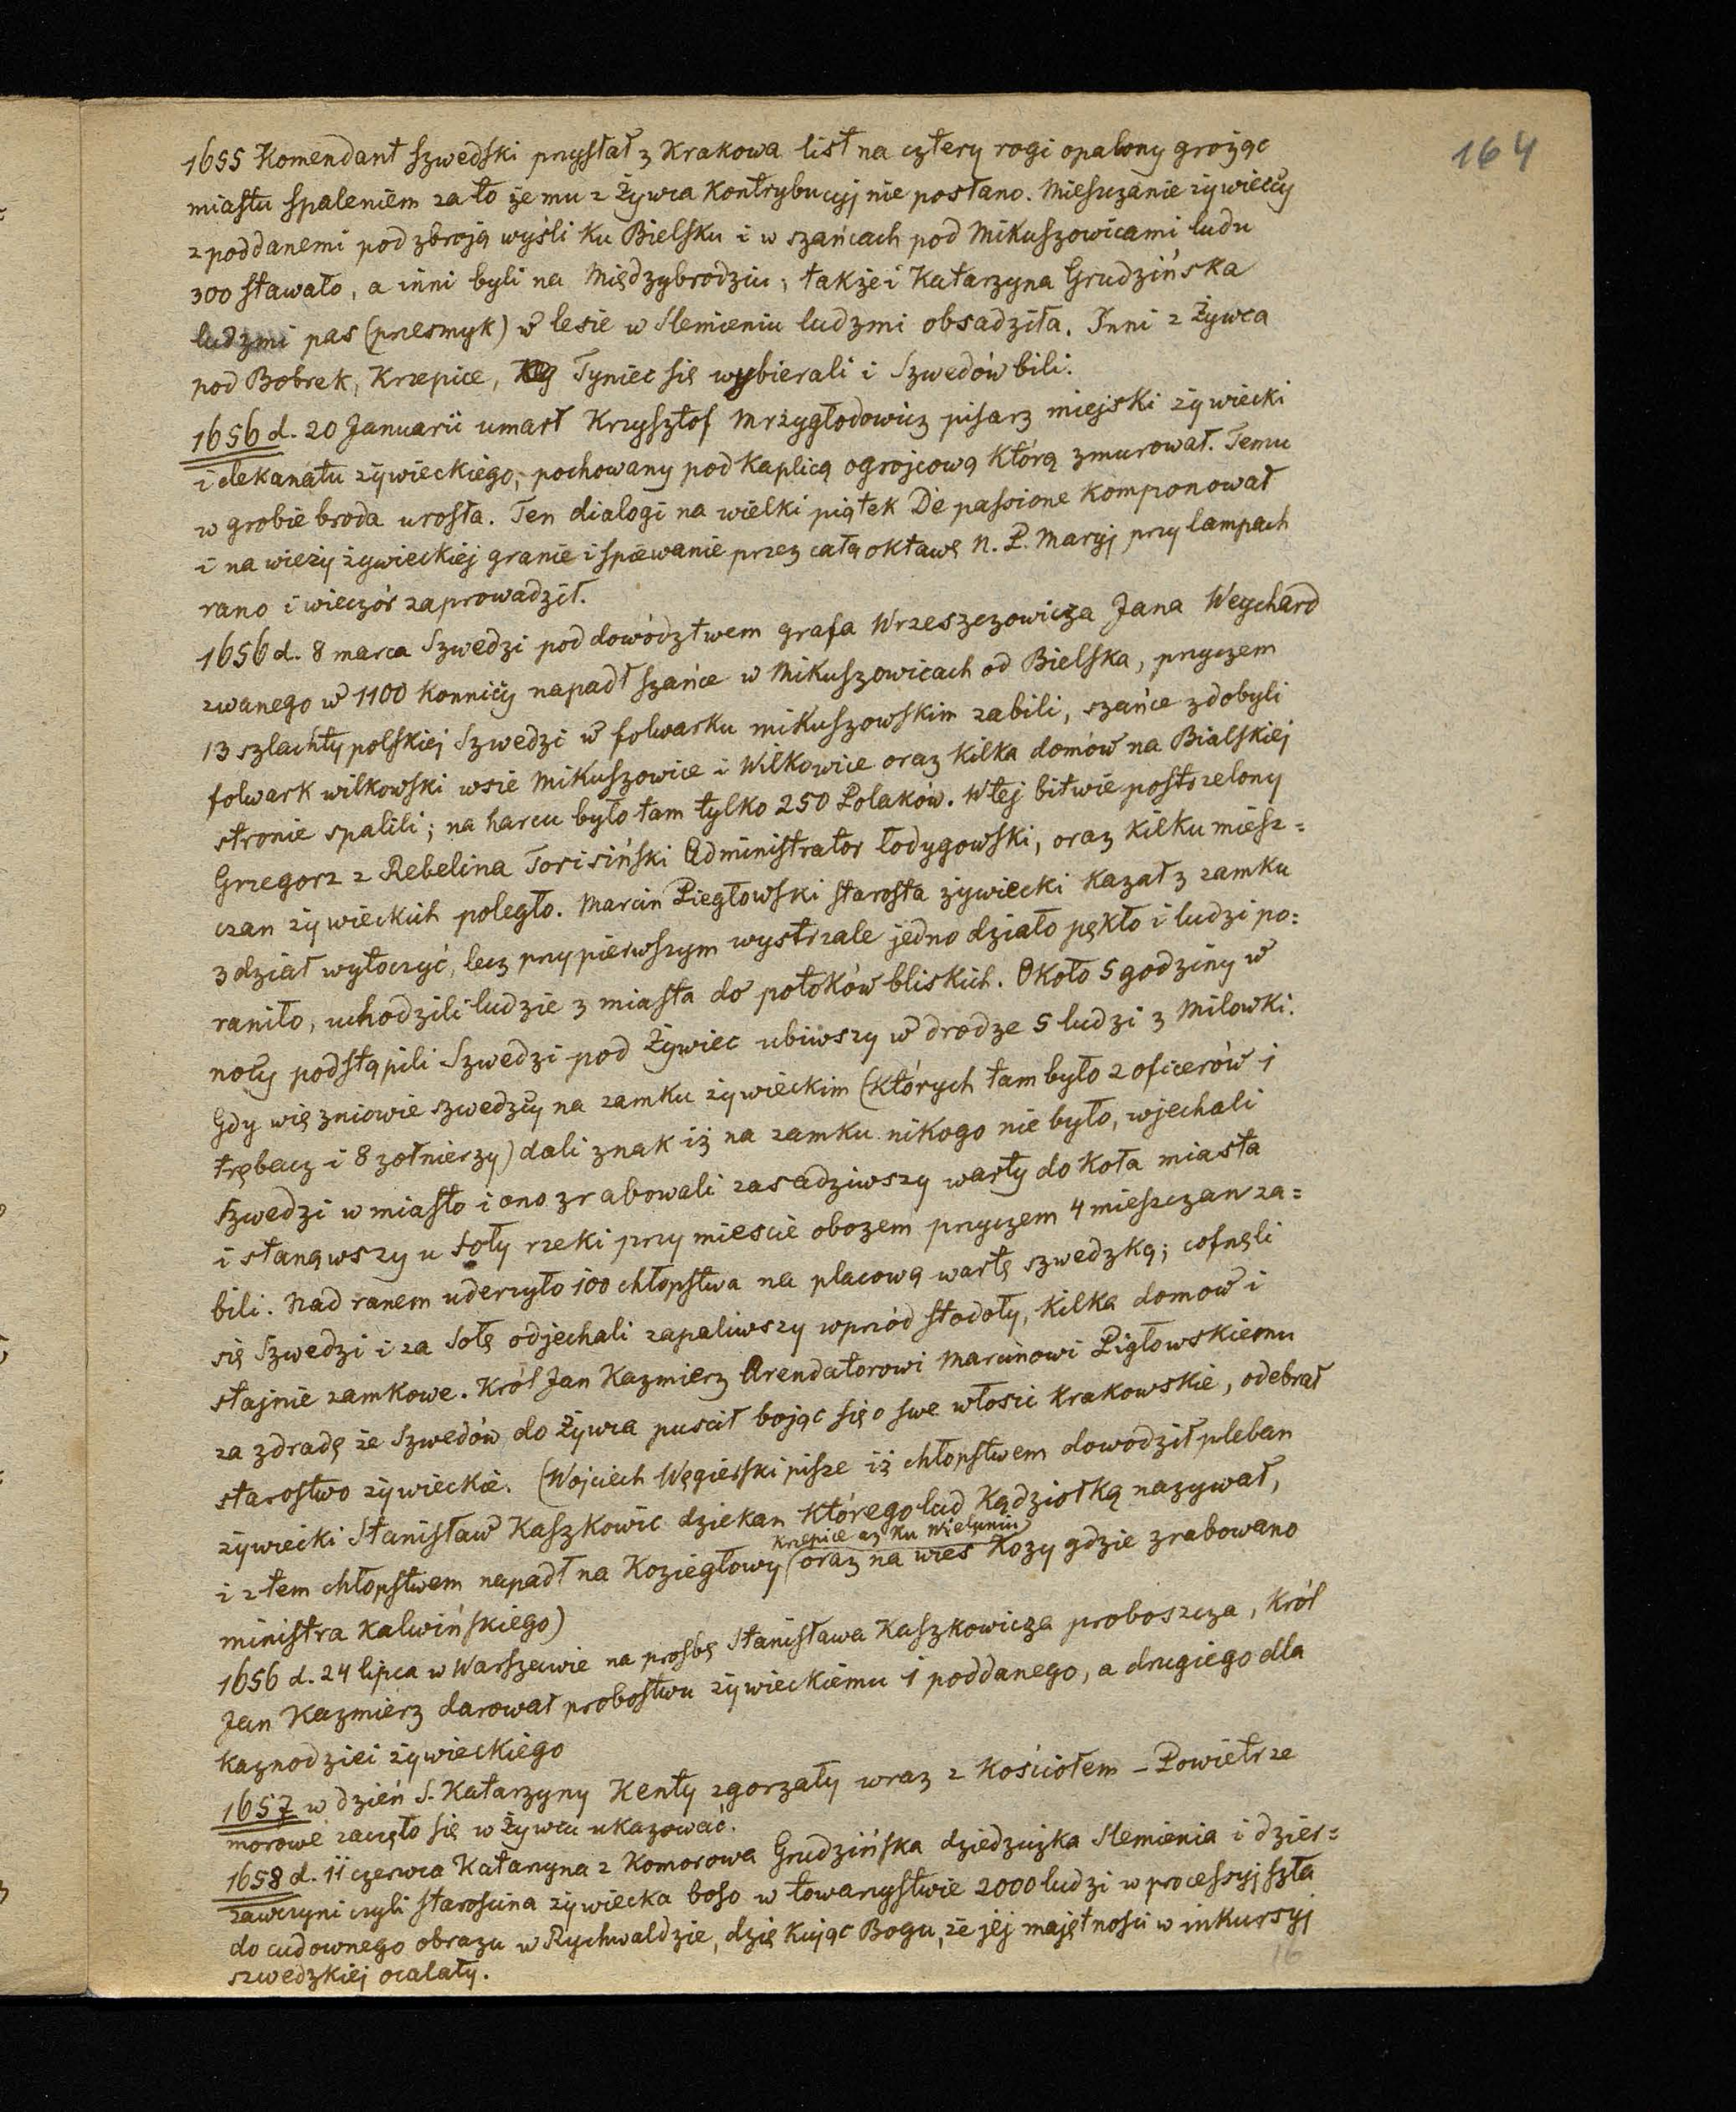 164
1655 Komendant szwedski przysłał z Krakowa list na cztery rogi opalony grożąc
miastu spaleniem za to że mu z Żywca Kontrybucyj nie posłano. Mieszczanie żywieccy
z poddanemi pod zbroją wyśli ku Bielsku i w szańcach pod Mikuszowicami ludu
300 stawało, a inni byli na Międzybrodziu; także i Katarzyna Grudzińska
ludzmi pas (przesmyk) w lesie w Slemieniu ludzmi obsadziła. Inni z Żywca
pod Bobrek, Krzepice, Tyniec się wybierali i Szwedów bili.
1656 d. 20 Januarii umarł Krzysztof Mrzygłodowicz pisarz miejski żywiecki
i dekanatu żywieckiego, pochowany pod Kaplicą ogrojcową Którą zmurował. Temu
w grobie broda urosła. Ten dialogi na wielki piątek De passione Komponował
i na wieży żywieckiej granie i śpiewanie przez całą oktawę N. P. Maryj przy lampach
rano i wieczór zaprowadził.
1656 d. 8 marca Szwedzi pod dowództwem grafa Wrzeszczowicza Jana Weychard
zwanego w 1100 Konnicy napadł szańce w Mikuszowicach od Bielska, przyczem
13 szlachty polskiej Szwedzi w folwarku mikuszowskim zabili, szańce zdobyli
folwark wilkowski wsie Mikuszowice i Wilkowice oraz Kilka domów na Bialskiej
stronie spalili; na harcu było tam tylko 250 Polaków. W tej bitwie postrzelony
Grzegorz z Rebelina Torisiński Administrator łodygowski, oraz Kilku miesz=
czan żywieckich poległo. Marcin Piegłowski starosta żywiecki Kazał z zamku
3 dział wytoczyć, lecz przy pierwszym wystrzale jedno działo pękło i ludzi po=
raniło, uchodzili ludzie z miasta do potoków bliskich. Około 5 godziny w
nocy podstąpili Szwedzi pod Żywiec ubiwszy w drodze 5 ludzi z Milowki.
Gdy więzniowie szwedzcy na zamku żywieckim (Których tam było 2 oficerów 1
trębacz i 8 żołnierzy) dali znak iż na zamku nikogo nie było, wjechali
Szwedzi w miasto i ono zrabowali zasadziwszy warty do Koła miasta
i stanąwszy u Soły rzeki przy miescie obozem przyczem 4 mieszczan za=
bili. Nad ranem uderzyło 100 chłopstwa na placową wartę szwedzką; cofnęli
się Szwedzi i za Sołę odjechali zapaliwszy wprzód stodoły, Kilka domow i
stajnie zamkowe. Król Jan Kazmierz Arendatorowi Marcinowi Pigłowskiemu
za zdradę że Szwedów do Żywca puscił bojąc się o swe włosci Krakowskie, odebrał
starostwo żywieckie. (Wojciech Węgierski pisze iż chłopstwem dowodził pleban
żywiecki Stanisław Kaszkowic dziekan Którego lud Kądziołką nazywał,
Krzepice aż Ku Wielunin
i z tem chłopstwem napadł na Koziegłowy oraz na wies Kozy gdzie zrabowano
ministra Kalwińskiego)
1656 d. 24 lipca w Warszawie na prosbę Stanisława Kaszkowicza proboszcza, Król
Jan Kazmierz darował probostwu żywieckiemu 1 poddanego, a drugiego dla
Kaznodziei żywieckiego
1657 w dzień S. Katarzyny Kenty zgorzały wraz z Kościołem – Powietrze
morowe zaczęło się w Żywcu ukazować.
1658 d. 11 czerwca Katarzyna z Komorowa Grudzińska dziedziczka Slemienia i dzier=
zawczyni czyli starościna żywiecka boso w towarzystwie 2000 ludzi w processyj szła
do cudownego obrazu w Rychwaldzie, dziękując Bogu, że jej majętności w inkursyj
szwedzkiej ocalały.
16